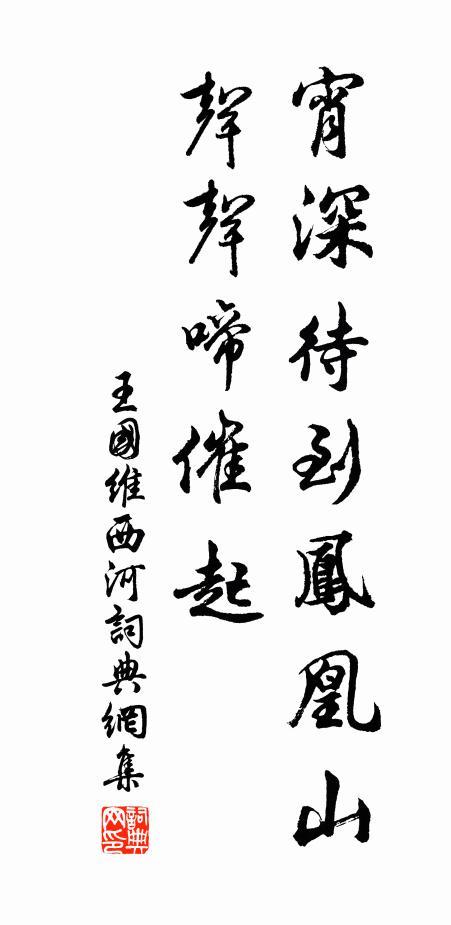 宵深待到鳳凰山
聲聲啼催起
王國維西河詞典網集
詞典网印